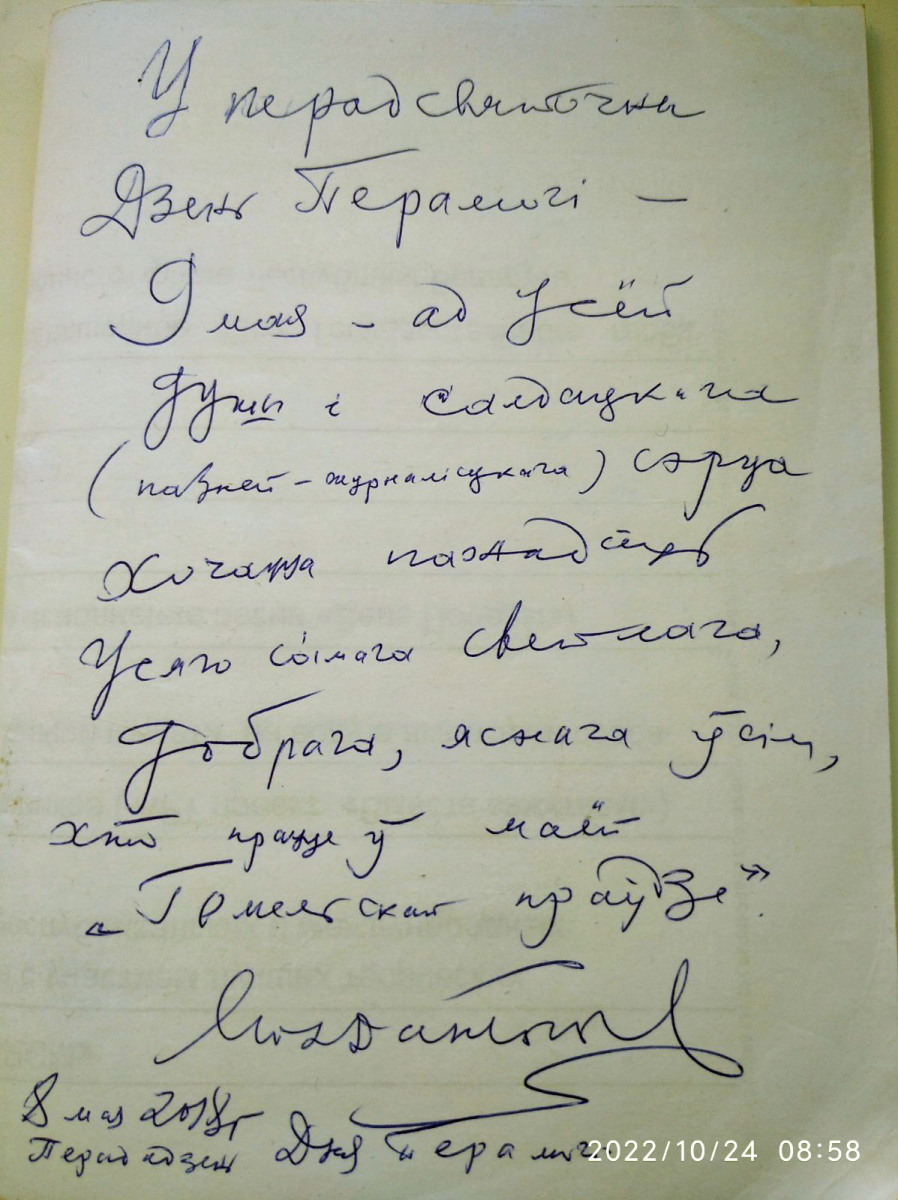 У перадсвяточны
Дзень Перамогі –
9 мая – ад усёй
душы і салдацкага
(паўней – журналісцкага) сэрца
хочацца пажадаць
Усяго самага светлага,
добрага, яснага ўсім,
хто працуе ў маёй
„Гомельскай праўдзе”.
8 мая 2018 г
Перададзень Дня Перамогі
2022/10/24 08:58